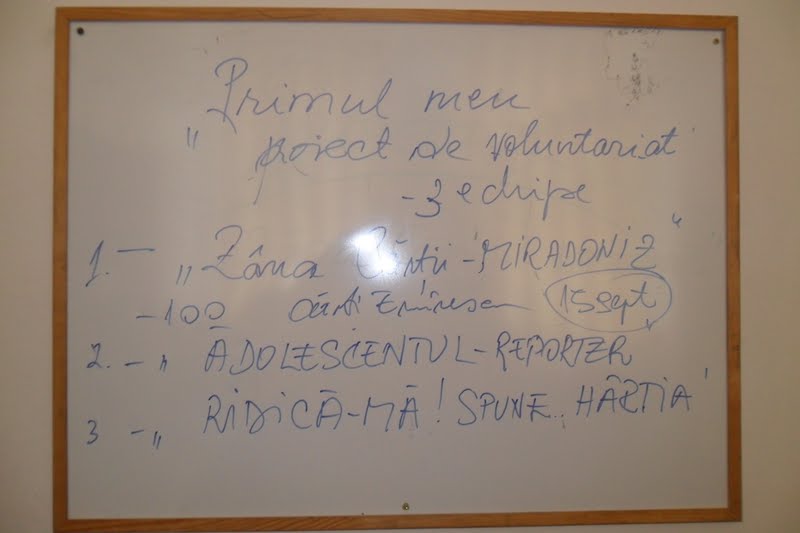 Primul meu
„ proiect de voluntariat
-3 echipe
1. — „Zâna Cărții - MIRADONIZ"
-100 Cărți Eminescu 15 sept
2. - „ ADOLESCENTUL-REPORTER"
3 - „ RIDICĂ-MĂ! SPUNE.. HÂRTIA"